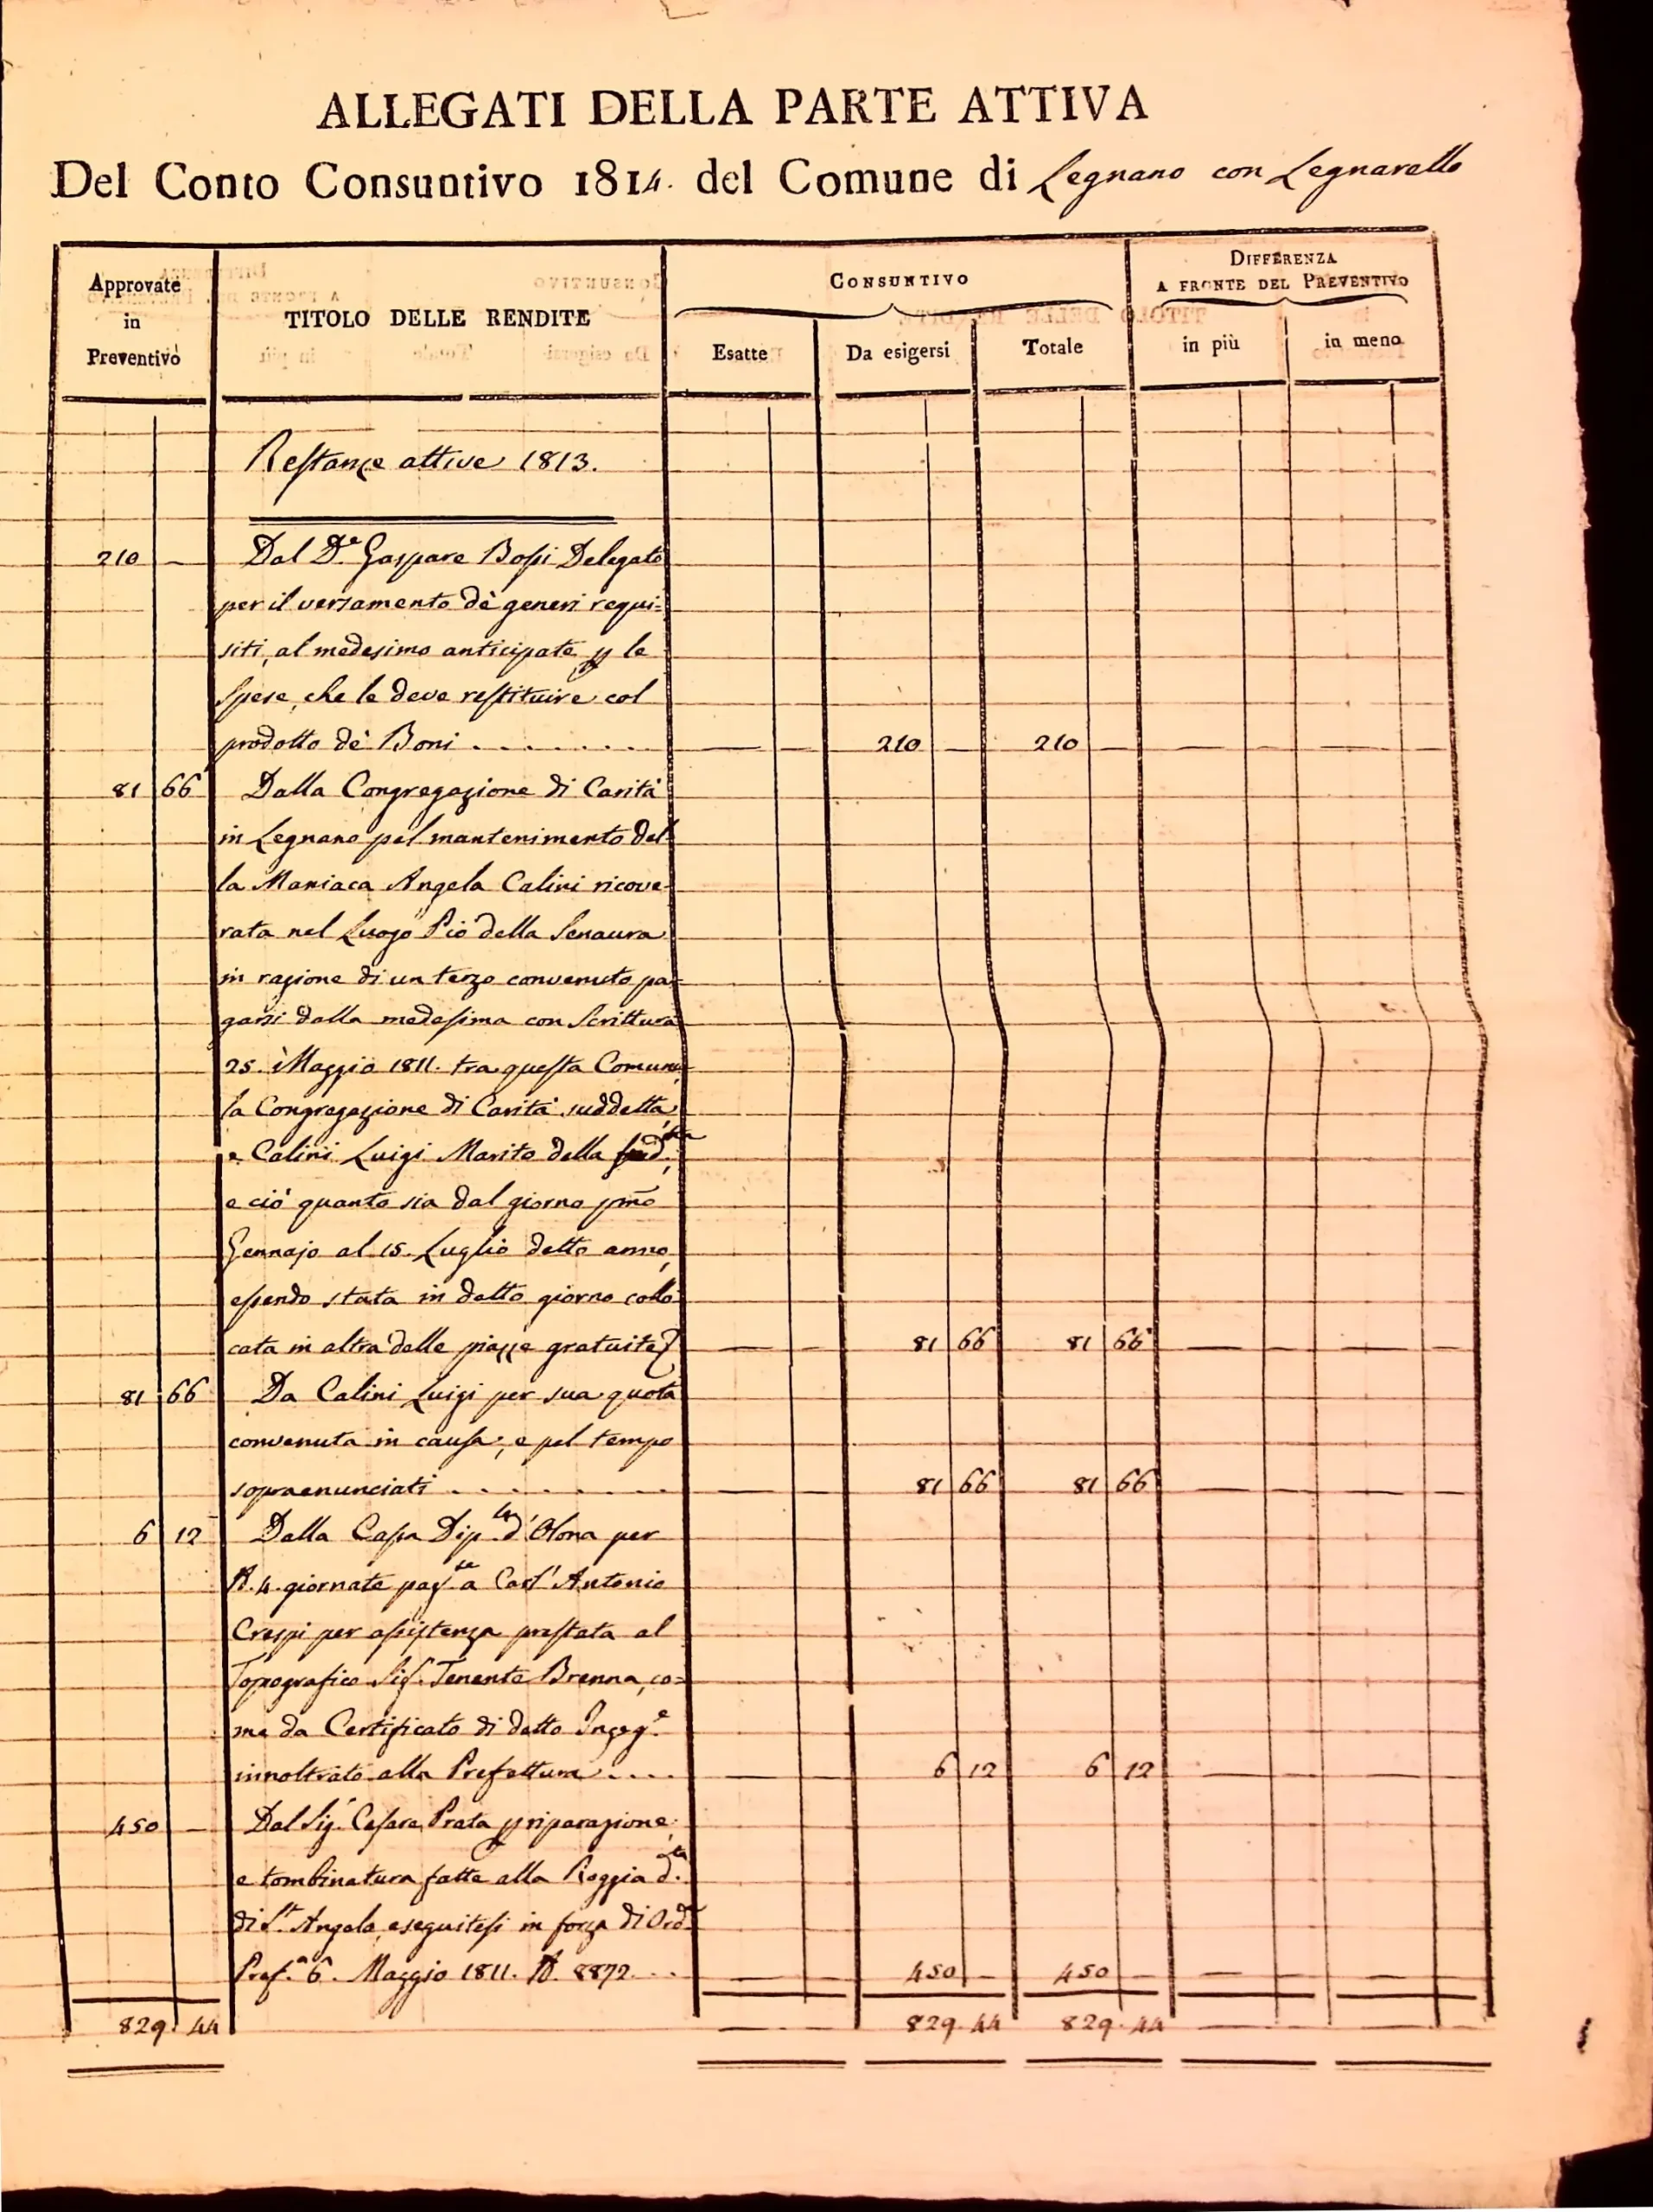 ALLEGATI DELLA PARTE ATTIVA
Del Conto Consuntivo 1814. del Comune di Legnano con Legnarello
Approvate in Preventivo
TITOLO DELLE RENDITE
CONSUNTIVO
Esatte
Da esigersi
Totale
DIFFERENZA
A FRONTE DEL PREVENTIVO
in più
in meno
Restanze attive 1813.
210 — Dal Dr. Gaspare Bossi Delegato
per il versamento dè generi requi=
siti, al medesimo anticipate p le
spese, che le deve restituire col
prodotto dè Boni . . . . . . . . — — 210 — 210 — — — — —
81 66 Dalla Congregazione di Carità
in Legnano pel mantenimento del=
la Maniaca Angela Calini ricove=
rata nel Luogo Pio della Senaura
in ragione di un terzo convenuto pa=
garsi dalla medesima con Scrittura
25. Maggio 1811. tra questa Comune,
la Congregazione di Carità suddetta,
e Calini Luigi Marito della
e ciò quanto sia dal giorno pmo
Gennajo al 15. Luglio detto anno,
essendo stata in detto giorno collo=
cata in altra delle piazze gratuite — — 81 66 81 66 — — — —
81 66 Da Calini Luigi per sua quota
convenuta in causa, e pel tempo
sopraenunciati . . . . . . . . — — 81 66 81 66 — — — —
6 12 Dalla Cassa Dip.le d'Olona per
N. 4. giornate pag.te a Carl' Antonio
Crespi per assistenza prestata al
Topografico Sig. Tenente Brenna, co=
me da Certificato di detto Ingeg.e
innoltrato alla Prefettura . . . . — — 6 12 6 12 — — — —
450 — Dal Sig. Cesare Prata p riparazione,
e tombinatura fatte alla Roggia d.ta
di S.t Angelo, eseguitesi in forza di Ord.
Pref.a 6. Maggio 1811. N. 8872. . . — — 450 — 450 — — — — —
829. 44 — — 829. 44 829. 44 — — — —